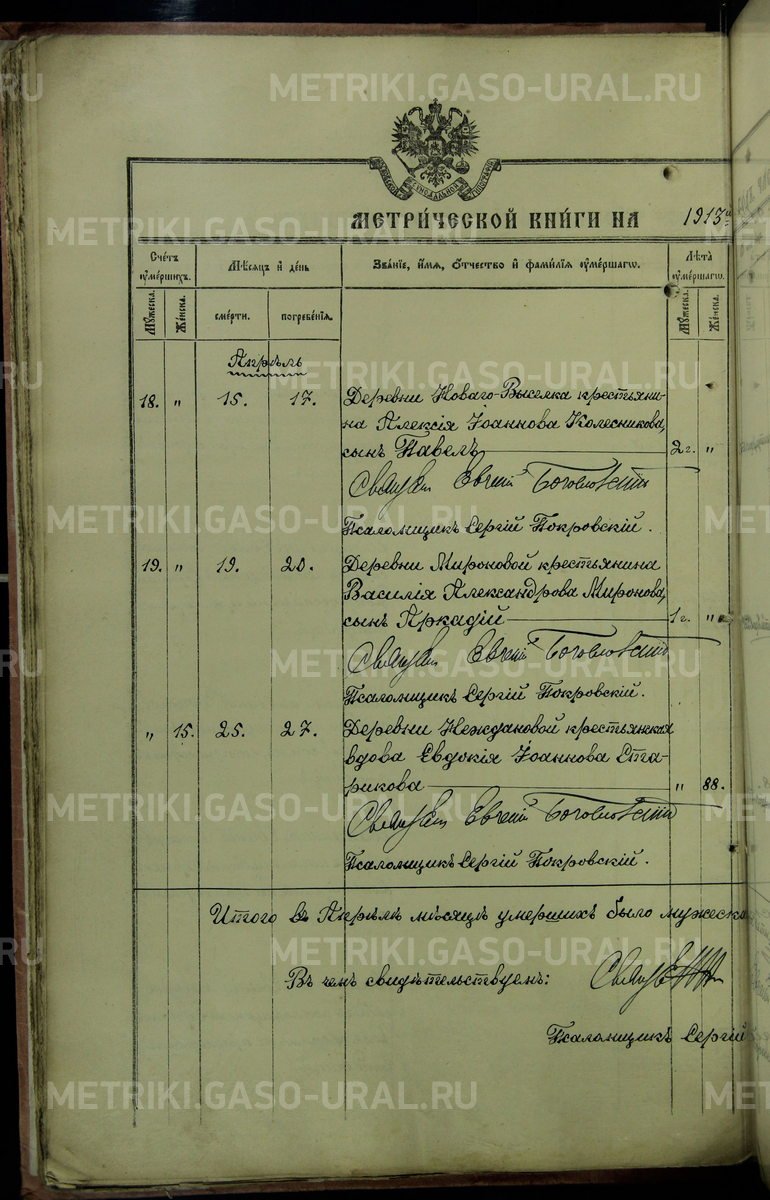 METRIKI.GASO-URAL.RU
МЕТРИ́ЧЕСКОЙ КНИ́ГИ НА 1913й
Счётъ ᲂу҆ме́ршихъ.
Мѣ́сѧцъ и҆ де́нь
Зва́нїе, и҆́мѧ, ѻ҆́тчество и҆ фами́лїѧ ᲂу҆ме́ршагѡ.
Лѣ̑та ᲂу҆ме́ршагѡ.
Мꙋ́жеска.
Же́нска.
сме́рти.
погребе́нїѧ.
Мꙋ́жеска.
Же́нска.
Апрѣль
18. „ 15. 17. Деревни Новаго-Выселка крестьяни-
на Алексія Іоаннова Колесникова,
сынъ Павелъ 2 г. „
Священ Евгеній Богословскій
Псаломщикъ Сергій Покровскій.
19. „ 19. 20. Деревни Мироновой крестьянина
Василія Александрова Миронова,
сынъ Аркадій 1 г. „
Священ Евгеній Богословскій
Псаломщикъ Сергій Покровскій.
„ 15. 25. 27. Деревни Неждановой крестьянская
вдова Евдокія Іоаннова Ста-
рикова „ 88.
Священ Евгеній Богословскій
Псаломщикъ Сергій Покровскій.
Итого въ Апрѣлѣ мѣсяцѣ умершихъ было мужеска
Въ чемъ свидѣтельствуемъ: Священ
Псаломщикъ Сергій